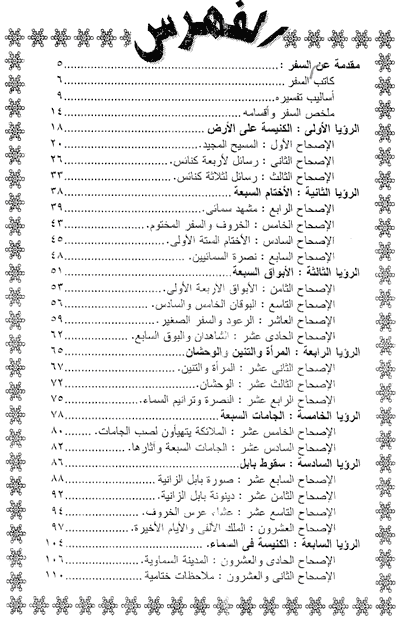 الفهرس
مقدمة عن السفر : ٥
كاتب السفر ٦
أساليب تفسيره ٩
ملخص السفر وأقسامه ١٤
الرؤيا الأولى : الكنيسة على الأرض ١٨
الإصحاح الأول : المسيح المجيد ٢٠
الإصحاح الثانى : رسائل لأربعة كنائس ٢٦
الإصحاح الثالث : رسائل لثلاثة كنائس ٣٣
الرؤيا الثانية : الأختام السبعة ٣٨
الإصحاح الرابع : مشهد سمائى ٣٩
الإصحاح الخامس : الخروف والسفر المختوم ٤٣
الإصحاح السادس : الأختام الستة الأولى ٤٥
الإصحاح السابع : نصرة السمائيين ٤٨
الرؤيا الثالثة : الأبواق السبعة ٥١
الإصحاح الثامن : الأبواق الأربعة الأولى ٥٣
الإصحاح التاسع : البوقان الخامس والسادس ٥٦
الإصحاح العاشر : الرعود والسفر الصغير ٥٩
الإصحاح الحادى عشر : الشاهدان والبوق السابع ٦٢
الرؤيا الرابعة : المرأة والتنين والوحشان ٦٥
الإصحاح الثانى عشر : المرأة والتنين ٦٧
الإصحاح الثالث عشر : الوحشان ٧٢
الإصحاح الرابع عشر : النصرة وترانيم السماء ٧٥
الرؤيا الخامسة : الجامات السبعة ٧٨
الإصحاح الخامس عشر : الملائكة يتهيأون لصب الجامات ٨٠
الإصحاح السادس عشر : الجامات السبعة وآثارها ٨٢
الرؤيا السادسة : سقوط بابل ٨٦
الإصحاح السابع عشر : صورة بابل الزانية ٨٨
الإصحاح الثامن عشر : دينونة بابل الزانية ٩٢
الإصحاح التاسع عشر : عشاء عرس الخروف ٩٤
الإصحاح العشرون : الملك الألفى والأيام الأخيرة ٩٧
الرؤيا السابعة : الكنيسة فى السماء ١٠٤
الإصحاح الحادى والعشرون : المدينة السماوية ١٠٦
الإصحاح الثانى والعشرون : ملاحظات ختامية ١١٠